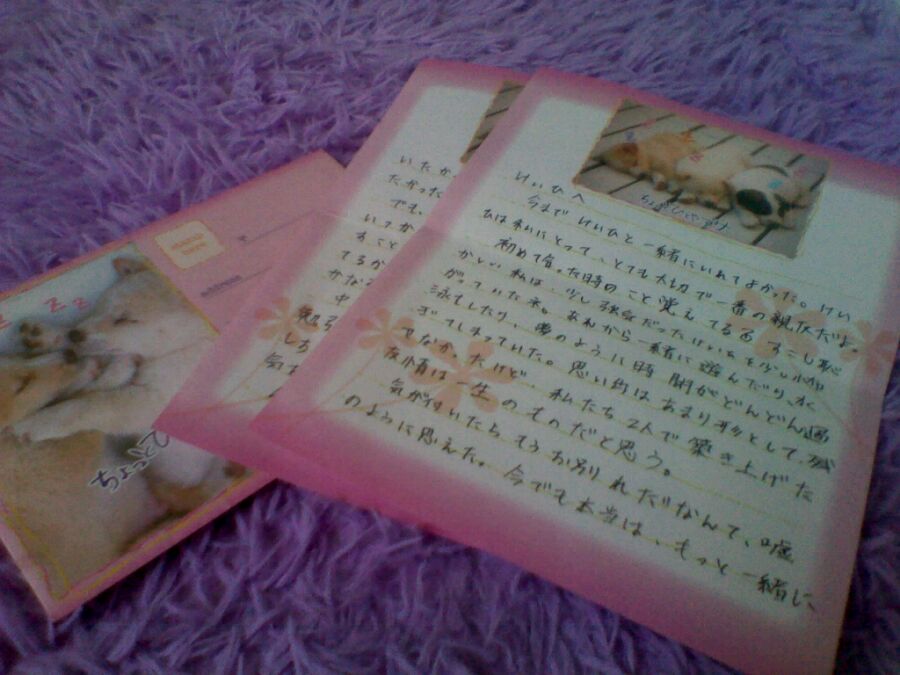 ちょっとひとやすみ
けいひへ
今まで けいひと一緒にいれてよかった。けい
ひは私にとって、とても大切で一番の親友だよ。
初めて会った時のこと覚えてる? すこし恥
かしい私は、少し強気だったけいひを少し
がっていたネ。あれから一緒に遊んだり、水
泳をしたり、夢のように時間がどんどん過
ぎてしまっていた。思い出はあまり形として残
せなかったけど、私たち2人で築き上げた
友情は一生のものだと思う。
気が付いたらもうお別れだなんて、嘘
のように思えた。今でも本当は、もっと一緒に、
いたか
だかった
でも、
いつか
すこと
てるか
かな
中
勉
しち
気
ちょっとひ